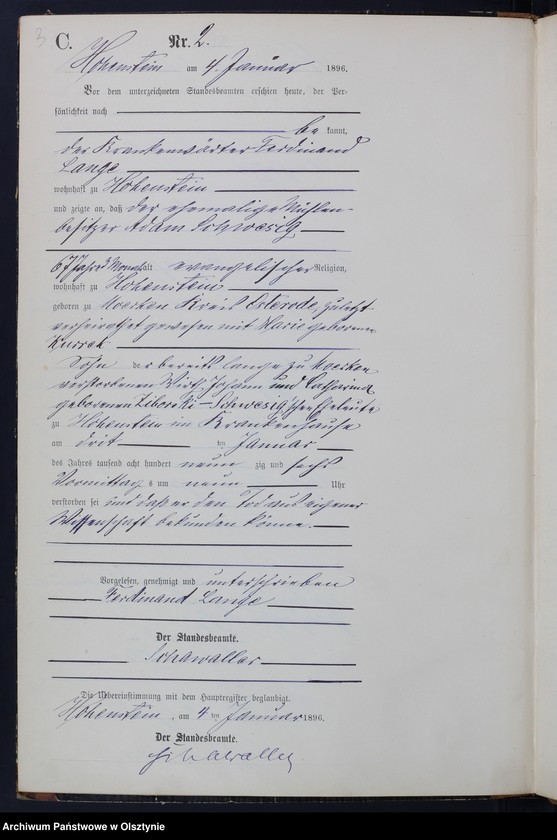 3
C. Nr. 2.
Hohenstein am 4. Januar 1896.
Vor dem unterzeichneten Standesbeamten erschien heute, der Per-
sönlichkeit nach
be kannt,
der Krankenwärter Ferdinand
Lange
wohnhaft zu Hohenstein
und zeigte an, daß der ehemalige Mühlen-
besitzer Adam Schwesig
67 Jahre Monat alt evangelischer Religion,
wohnhaft zu Hohenstein
geboren zu Kreis Osterode, zuletzt
verheirathet gewesen mit Marie geborenen
Sohn der bereits lange zu
verstorbenen Wirth Johann und Catharina
geborenen Ziborski-Schwesig'schen Eheleute
zu Hohenstein im Krankenhause
am dritten Januar
des Jahres tausend acht hundert neun zig und sechs
Vormittags um neun Uhr
verstorben sei und daß er den Tod aus eigener
Wissenschaft bekunden könne.
Vorgelesen, genehmigt und unterschrieben
Ferdinand Lange
Der Standesbeamte.
Schawaller
Die Uebereinstimmung mit dem Hauptregister beglaubigt.
Hohenstein, am 4 ten Januar 1896.
Der Standesbeamte.
Schawaller
Archiwum Państwowe w Olsztynie